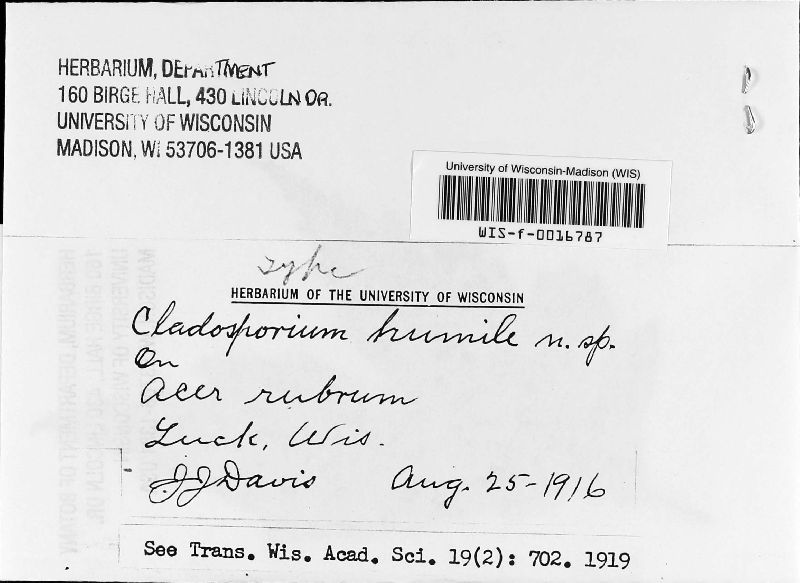 HERBARIUM, DEPARTMENT
160 BIRGE HALL, 430 LINCOLN DR.
UNIVERSITY OF WISCONSIN
MADISON, WI 53706-1381 USA
University of Wisconsin-Madison (WIS)
WIS-f-0016787
type
HERBARIUM OF THE UNIVERSITY OF WISCONSIN
Cladosporium humile n. sp.
On
Acer rubrum
Luck, Wis.
JJDavis Aug. 25-1916
See Trans. Wis. Acad. Sci. 19(2): 702. 1919